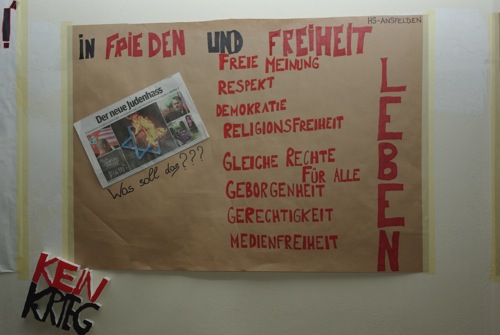 HS-ANSFELDEN
!
iN FRIEDEN UND FREIHEIT
LEBEN
FREiE MEINUNG
RESPEKT
DEMOKRATIE
RELIGIONSFREIHEIT
GLEICHE RECHTE
FÜR ALLE
GEBORGENHEIT
GERECHTIGKEIT
MEDIENFREIHEIT
Der neue Judenhass
Was soll das???
KEIN
KRIEG